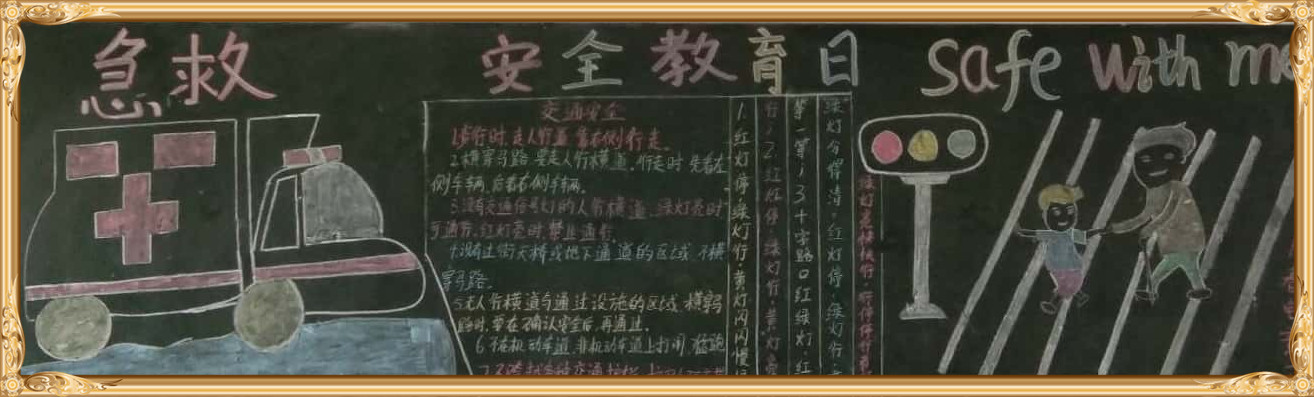 急救
安全教育日
safe with me
交通安全
1.步行时,走人行道,靠右侧行走。
2.横穿马路,要走人行横道,行走时先看左
侧车辆,后看右侧车辆。
3.没有交通信号灯的人行横道,绿灯亮时
可通行,红灯亮时禁止通行。
4.没有过街天桥或地下通道的区域,不横
穿马路。
5.无人行横道与通过设施的区域,横穿马
路时,要在确认安全后,再通过。
6.不在机动车道,非机动车道上打闹,猛跑
1.红灯停,绿灯行,黄灯闪闪慢
行;2.红灯停,绿灯行,黄灯亮
等一等;3.十字路口红绿灯,红
绿灯分得清,红灯停,绿灯行